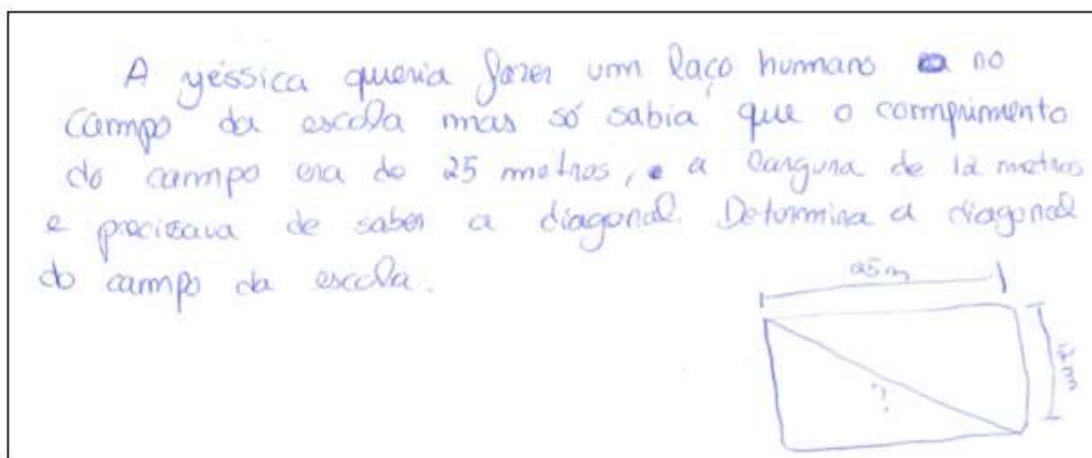 A yéssica queria fazer um laço humano no
campo da escola mas só sabia que o comprimento
do campo era de 25 metros, e a largura de 12 metros
e precisava de saber a diagonal. Determina a diagonal
do campo da escola.
25m
12m
?